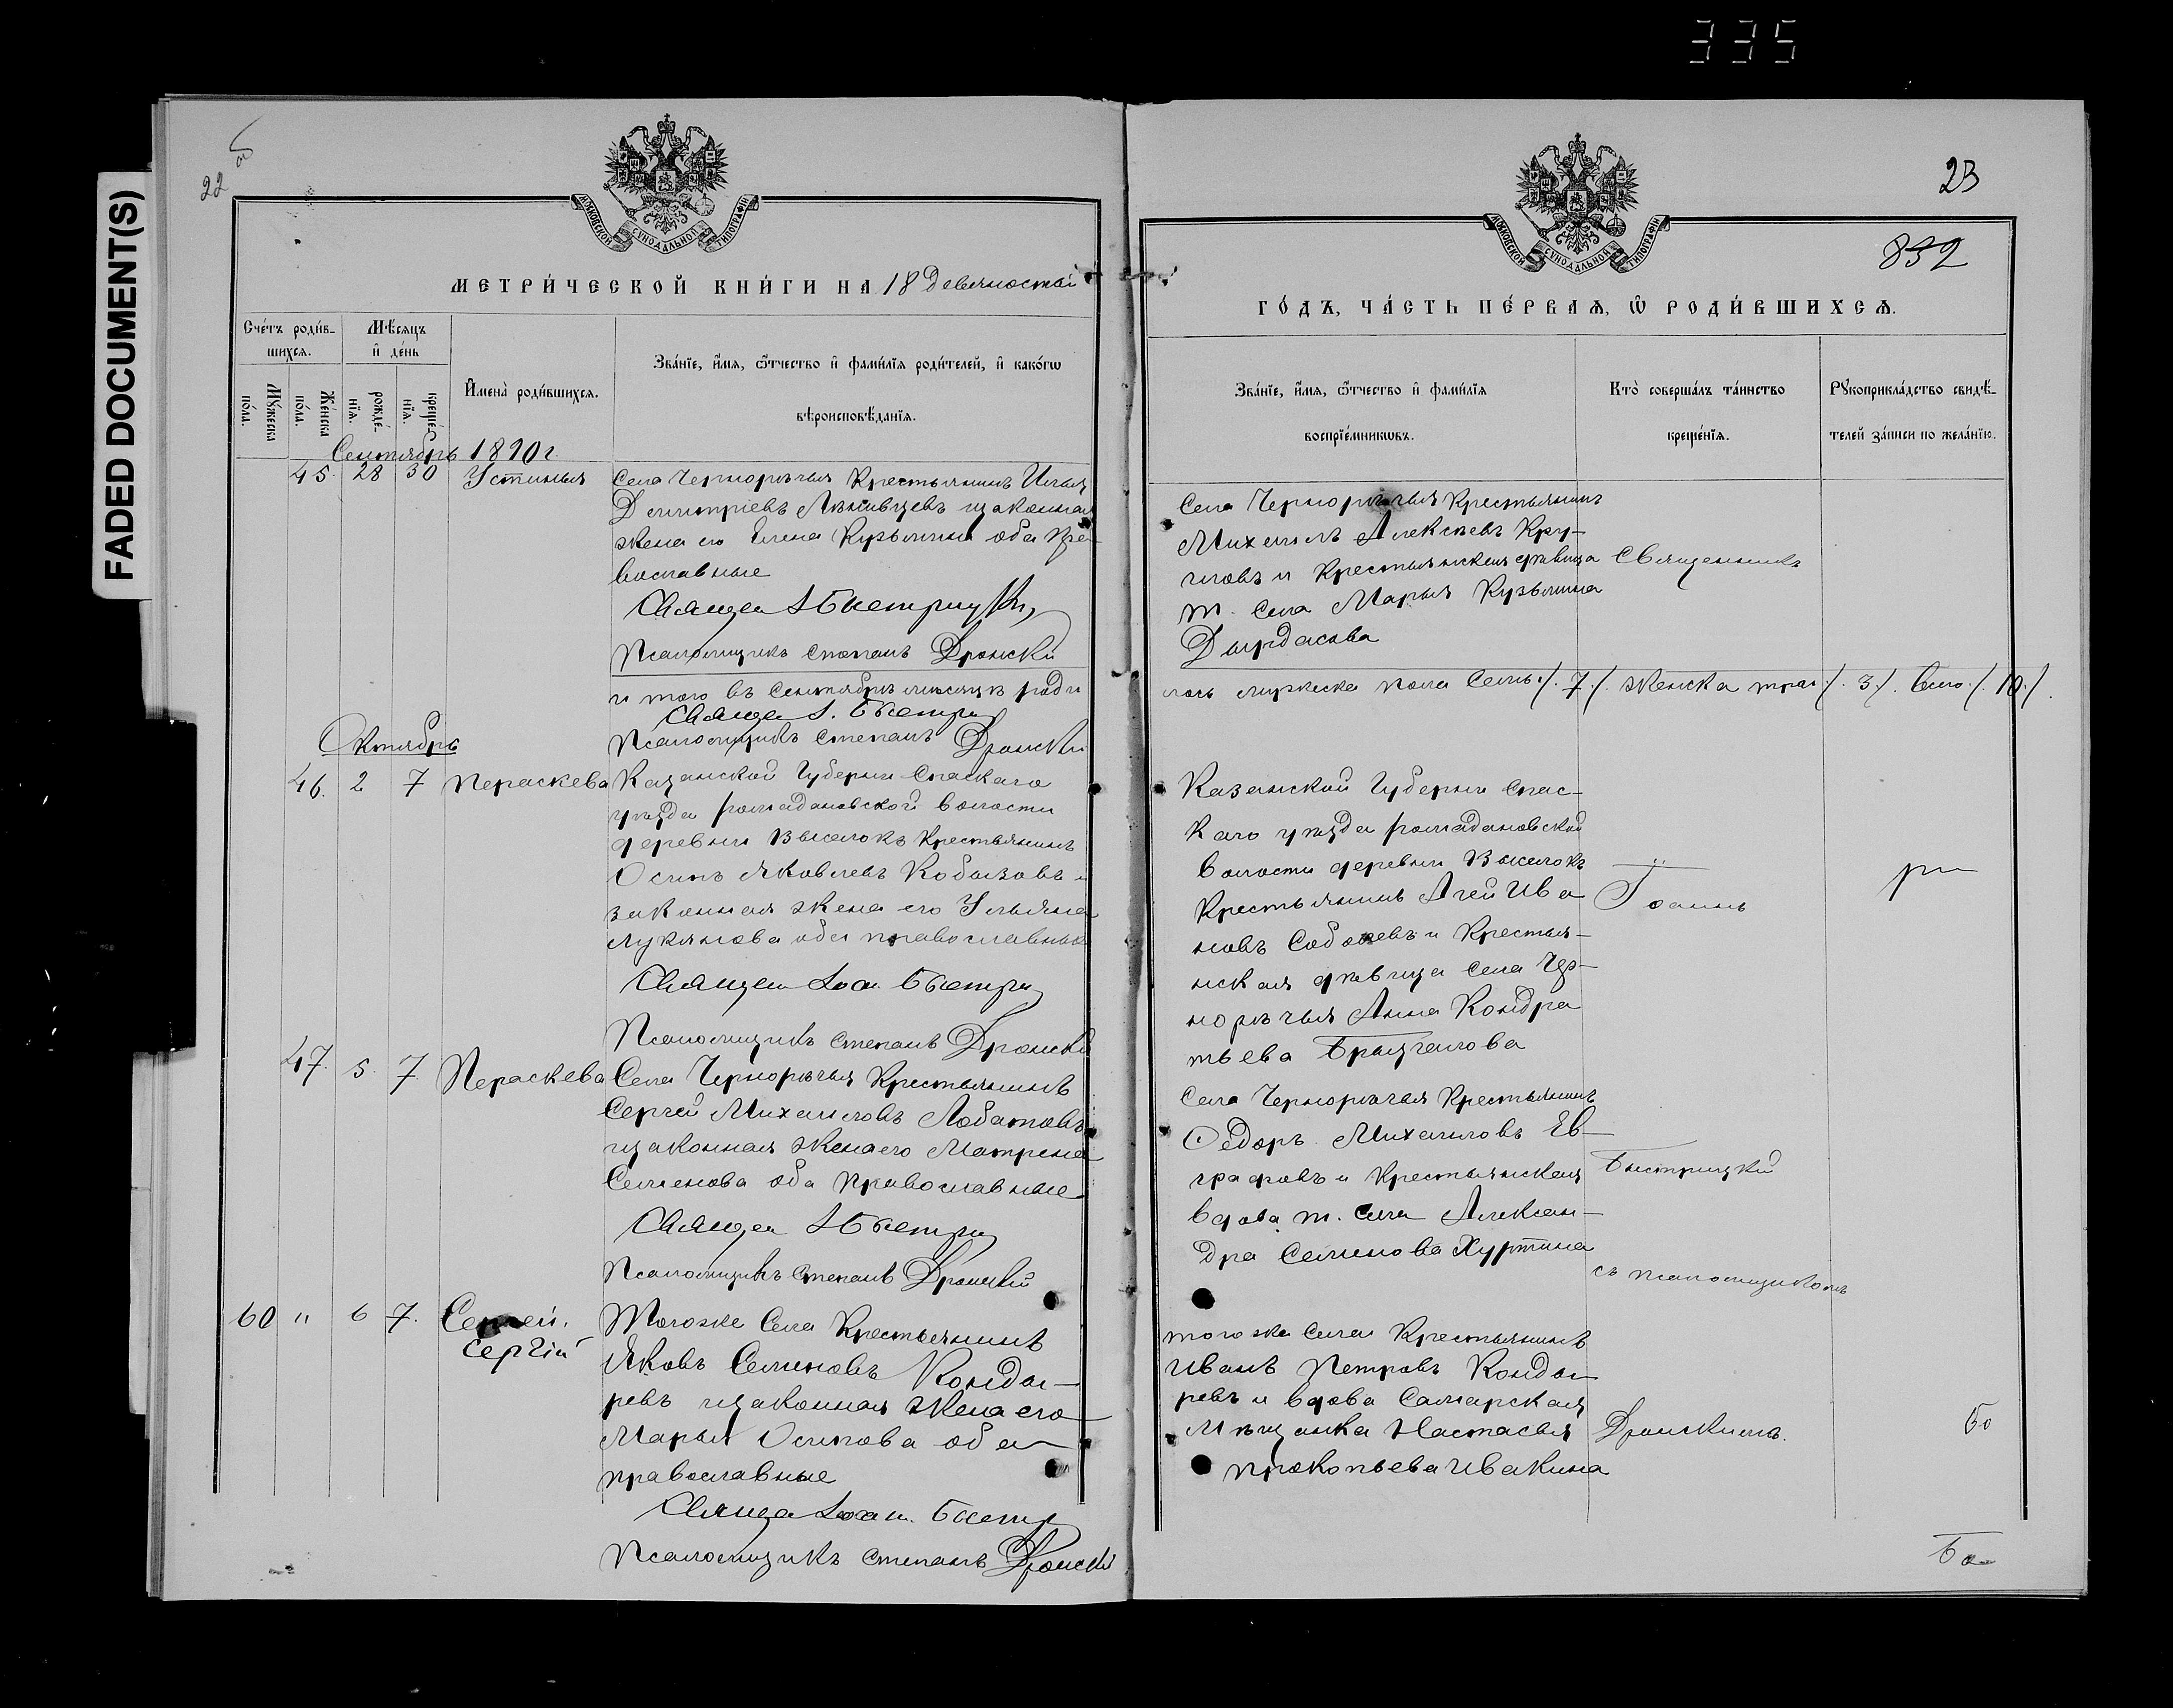 335
FADED DOCUMENT(S)
22
МОСКОВСКОЙ СѴНОДАЛЬНОЙ ТИПОГРАФІИ
МЕТРИ́ЧЕСКОЙ КНИ́ГИ НА 18 Девяностый
Сче́тъ роди́в-
шихся.
Мѣ́сяцъ
и҆ де́нь
Мꙋ́жеска
по́ла.
Же́нска
по́ла.
рожде́-
нїя.
креще́-
нїя.
И҆мена̀ роди́вшихся.
Зва́нїе, и҆́мя, ѻ҆́тчество и҆ фами́лїя роди́телей, и҆ како́гѡ
вѣроисповѣ́данїя.
Сентябрь 1890 г
45. 28 30 Устинья Села Чернорѣчья Крестьянинъ Илья
Дмитріевъ изаконная
жена его Елена Кузьмина оба пра-
вославные
Священ І Быстрицкій
Псаломщикъ Степанъ Дронский
и того въ Сентябрѣ мѣсяцѣ роди
Священ І. Быстри
Псаломщикъ Степанъ Дронский
Октябрь
46. 2 7 Пераскева Казанской Губерніи Спаскаго
уѣзда ромадановской волости
деревни Выселокъ Крестьянинъ
Осипъ Яковлевъ Кобызовъ и
законная жена его Ульяна
Лукянова оба православные
Священ Іоан Быстри
Псаломщикъ Степанъ Дронский
47. 5. 7. Пераскева Села Чернорѣчья Крестьянинъ
Сергей Михаиловъ Лобатовъ
изаконная жена его Матрена
Семенова оба православные
Священ І Быстри
Псаломщикъ Степанъ Дронский
60 " 6 7. Сергей.
Сергій
Тогоже Села Крестьянинъ
Яковъ Семеновъ Конды-
ревъ изаконная жена его
Марья Осипова оба
православные
Священ Іоан. Быстр
Псаломщикъ Степанъ Дронский
23
МОСКОВСКОЙ СѴНОДАЛЬНОЙ ТИПОГРАФІИ
892
ГО́ДЪ, ЧА́СТЬ ПЕ́РВАЯ, Ѡ҆ РОДИ́ВШИХСЯ.
Зва́нїе, и҆́мя, ѻ҆́тчество и҆ фами́лїя
воспрїе́мникѡвъ.
Кто̀ соверша́лъ та́инство
креще́нїя.
Рꙋкоприкла́дство свидѣ́-
телей за́писи по жела́нїю.
Села Чернорѣчья Крестьянинъ
Михаилъ Алексѣевъ Кру-
гловъ и Крестьянская дѣвица Священникъ
т. села Марья Кузьмина
лось мужеска пола Семь /.7./. женска три /.3./. Всего ./.10./.
Казанской Губерніи Спас-
каго уѣзда ромадановской
волости деревни Выселокъ
Крестьянинъ Агей Ива Іоаннъ
новъ и Крестья-
нская дѣвица Села Чер-
норѣчья Анна Кондра
тьева
Села Чернорѣчья Крестьянинъ
Ѳедоръ Михаиловъ Ев-
графовъ и Крестьянская Быстрицкій
вдова т. села Алексан-
дра Семенова Хуртина
съ псаломщикомъ
тогоже Села Крестьянинъ
Иванъ Петровъ Конды-
ревъ и вдова Самарская
Мѣщанка Настасья Дронскимъ.
прокопьева Ивакина